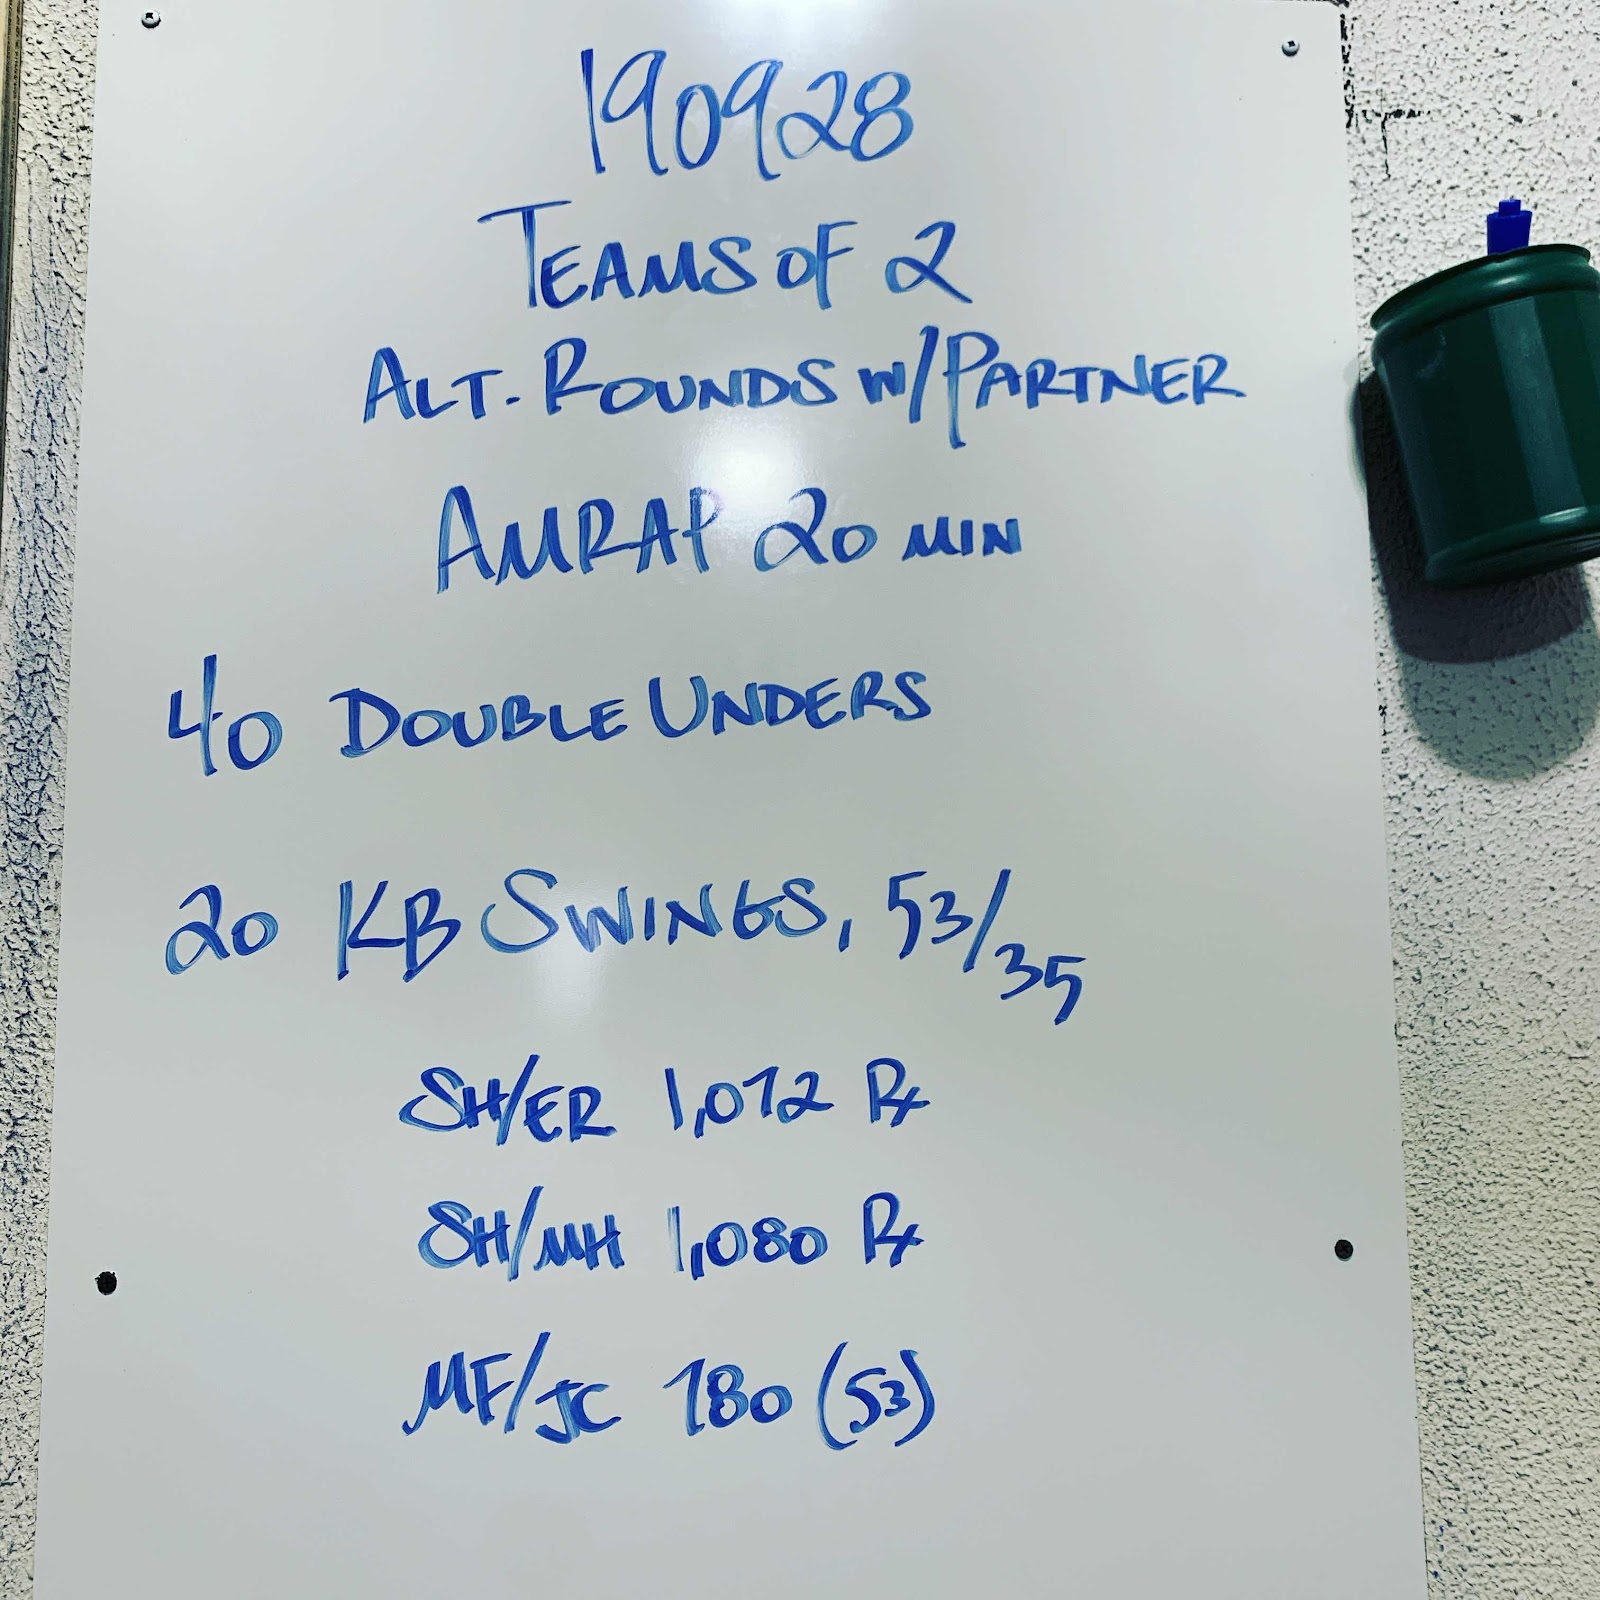 190928
TEAMS OF 2
ALT. ROUNDS W/PARTNER
AMRAP 20 MIN
40 DOUBLE UNDERS
20 KB SWINGS, 53/35
SH/ER 1,072 Rx
SH/MH 1,080 Rx
MF/JC 780 (53)